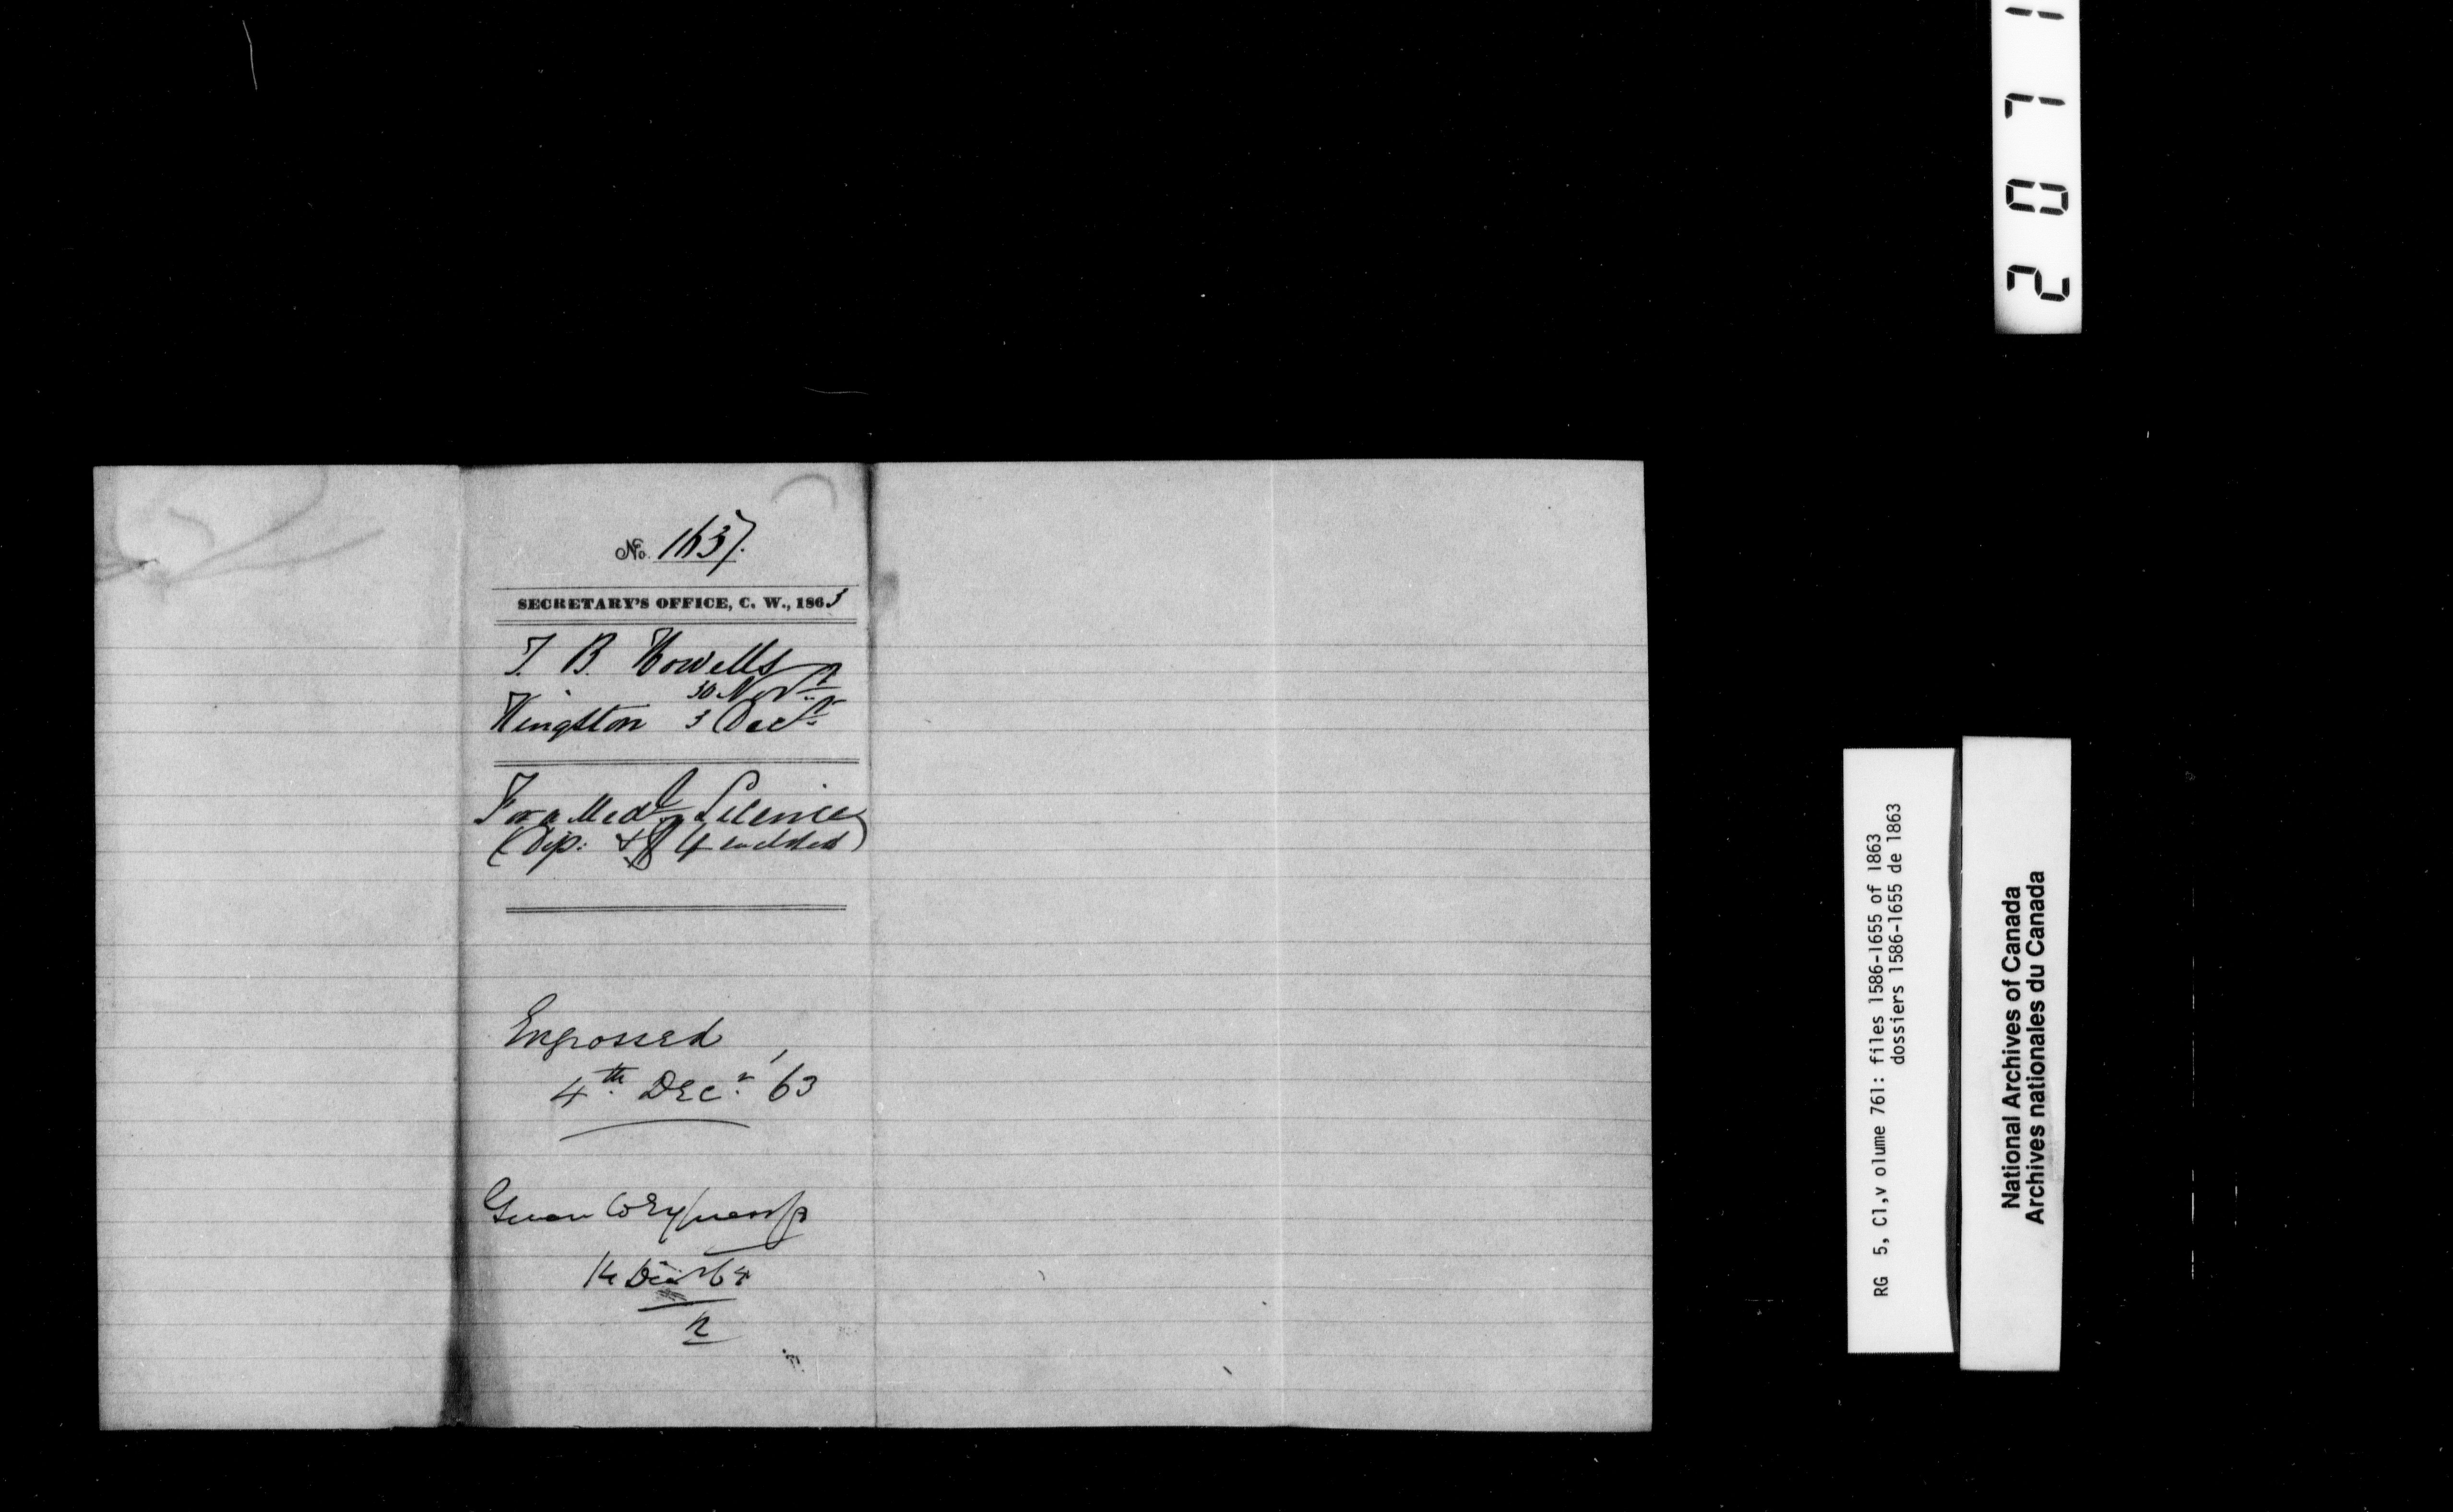 No. 1637.
SECRETARY'S OFFICE, C. W., 1863
T. B. Howells
30 Novr
Kingston 3 Decr
For a Medl License
(Dip: & $4 enclosed)
Engrossed
4th Decr '63
14 Decr 64
2071
RG 5, C1,v olume 761: files 1586-1655 of 1863
dossiers 1586-1655 de 1863
National Archives of Canada
Archives nationales du Canada